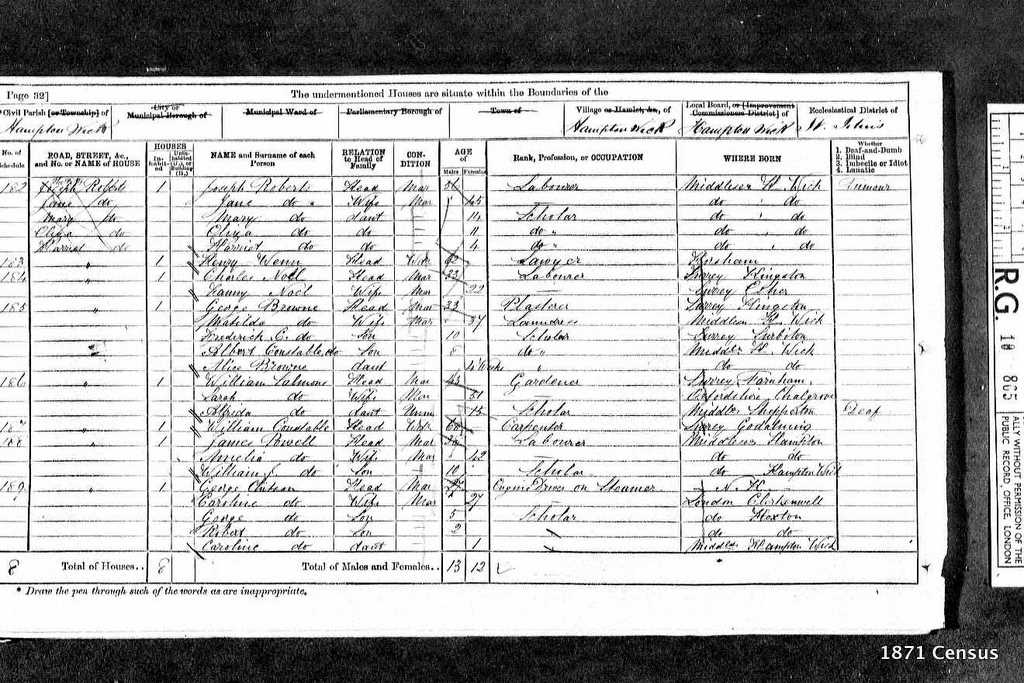 Page 32]
The undermentioned Houses are situate within the Boundaries of the
Civil Parish [or Township] of City or Municipal Borough of Municipal Ward of Parliamentary Borough of Town of Village or Hamlet, &c., of Local Board, or [Improvement Commissioners District] of Ecclesiastical District of
Hampton Wick Hampton Wick Hampton Wick St. John's
No. of Schedule ROAD, STREET, &c., and No. or NAME of HOUSE HOUSES Inhabited Uninhabited (U.), or Building (B.) NAME and Surname of each Person RELATION to Head of Family CONDITION AGE of Males Females Rank, Profession, or OCCUPATION WHERE BORN Whether 1. Deaf-and-Dumb 2. Blind 3. Imbecile or Idiot 4. Lunatic
182 1 Joseph Roberts Head Mar Labourer Middlesex H. Wick
Jane do Jane do Wife Mar 45 do do
Mary do Mary do daut 14 Scholar do do
Eliza do Eliza do do 11 do do do
Harriet do Harriet do do 4 do do do
183 " 1 Henry Head Lawyer Horsham
184 " 1 Charles Noel Head Mar Labourer Surrey Kingston
Fanny Noel Wife Mar 22 Surrey Esher
185 " 1 George Browne Head Mar 33 Plasterer Surrey Kingston
Matilda do Wife Mar 37 Laundress Middlesex H. Wick
Frederick C. do Son 10 Scholar Surrey Surbiton
Albert Constable do Son 8 do " Middlx H. Wick
Alice Browne daut Weeks " do do
186 " 1 William Salmons Head Mar 43 Gardener Surrey Farnham
Sarah do Wife Mar 51 Oxfordshire Chalgrove
do daut Unm 15 Scholar Middlx Shepperton Deaf
187 " 1 William Constable Head Carpenter Surrey Godalming
188 " 1 James Powell Head Mar Labourer Middlesex Hampton
Amelia do Wife Mar 42 do do
William J. do Son 10 Scholar do Hampton Wick
189 " 1 George Head Mar Engine Driver on Steamer N. K.
Caroline do Wife Mar 27 London Clerkenwell
George do Son 5 Scholar do Hoxton
Robert do Son 2 " do do
Caroline do daut 1 " Middlx Hampton Wick
8 Total of Houses.. 8 Total of Males and Females.. 13 12
* Draw the pen through such of the words as are inappropriate.
R.G. 10 865
ALLY WITHOUT PERMISSION OF THE
PUBLIC RECORD OFFICE, LONDON
1871 Census